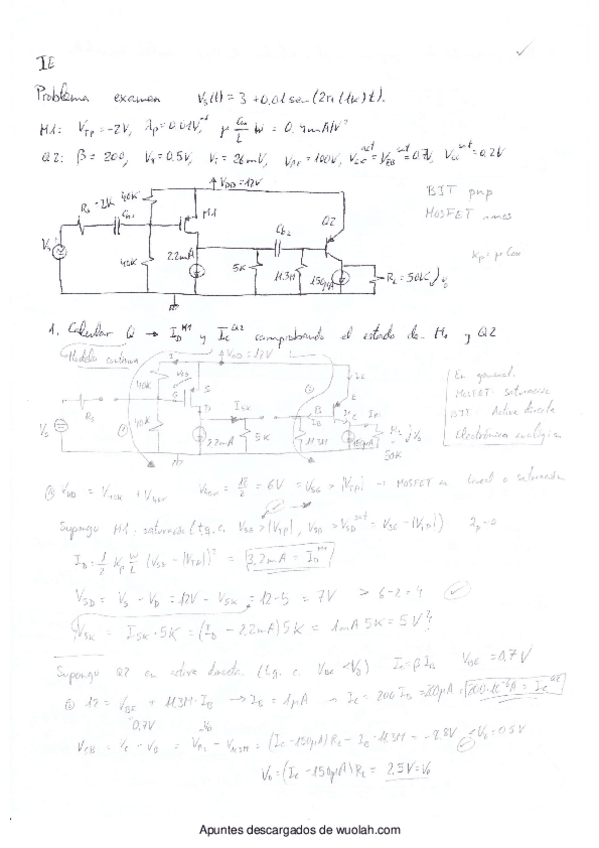 IE
Problema examen Vs(t) = 3 + 0.01 sen (2π(1k)t).
M1: VTP = -2V, λp = 0.01V⁻¹, μ Cox/L W = 0.4mA/V²
Q2: β = 200, Vγ = 0.5V, VT = 26mV, VAF = 100V, VBEact = VEBsat = 0.7V, VECsat = 0.2V
VDD = 12V
Rs = 2K
Cb1
40K
M1
BJT pnp
MOSFET
Vs
40K
2.2mA
Cb2
Q2
5K
11.3M
150μA
RL = 50K
Vo
Kp = μ Cox
1. Calcular Q → ID M1 y IC Q2 comprobando el estado de M1 y Q2
Modelo continua
VDD = 12V
40K
VSG
S
G
D
Rs
Vs
40K
2.2mA
I5K
5K
B
IB
E
IC
11.3M
RL
50K
Vo
En general
MOSFET: saturación
BJT: Activa directa
Electrónica analógica
VDD = V40K + V40K V40K = 12/2 = 6V = VSG > |VTp| → MOSFET en lineal o saturación
Supongo M1 saturación (t.q. VSG > |VTp|, VSD > VSDsat = VSG - |VTp|) λp = 0
ID = 1/2 Kp W/L (VSG - |VTp|)² = 3.2mA = ID M1
VSD = VS - VD = 12V - V5K = 12 - 5 = 7V > 6-2 = 4
V5K = I5K · 5K = (ID - 2.2mA) 5K = 1mA 5K = 5V
Supongo Q2 en activa directa IC = β IB VBE = 0.7V
12 = VBE + 11.3M · IB → IB = 1μA → IC = 200 IB = 200μA = 200·10⁻⁶A = IC Q2
0.7V
VCB = VC - VB = VRL - V11.3M = (IC - 150μA) RL - IB · 11.3M = -8.8V
Vo = (IC - 150μA) RL = 2.5V = Vo
Apuntes descargados de wuolah.com